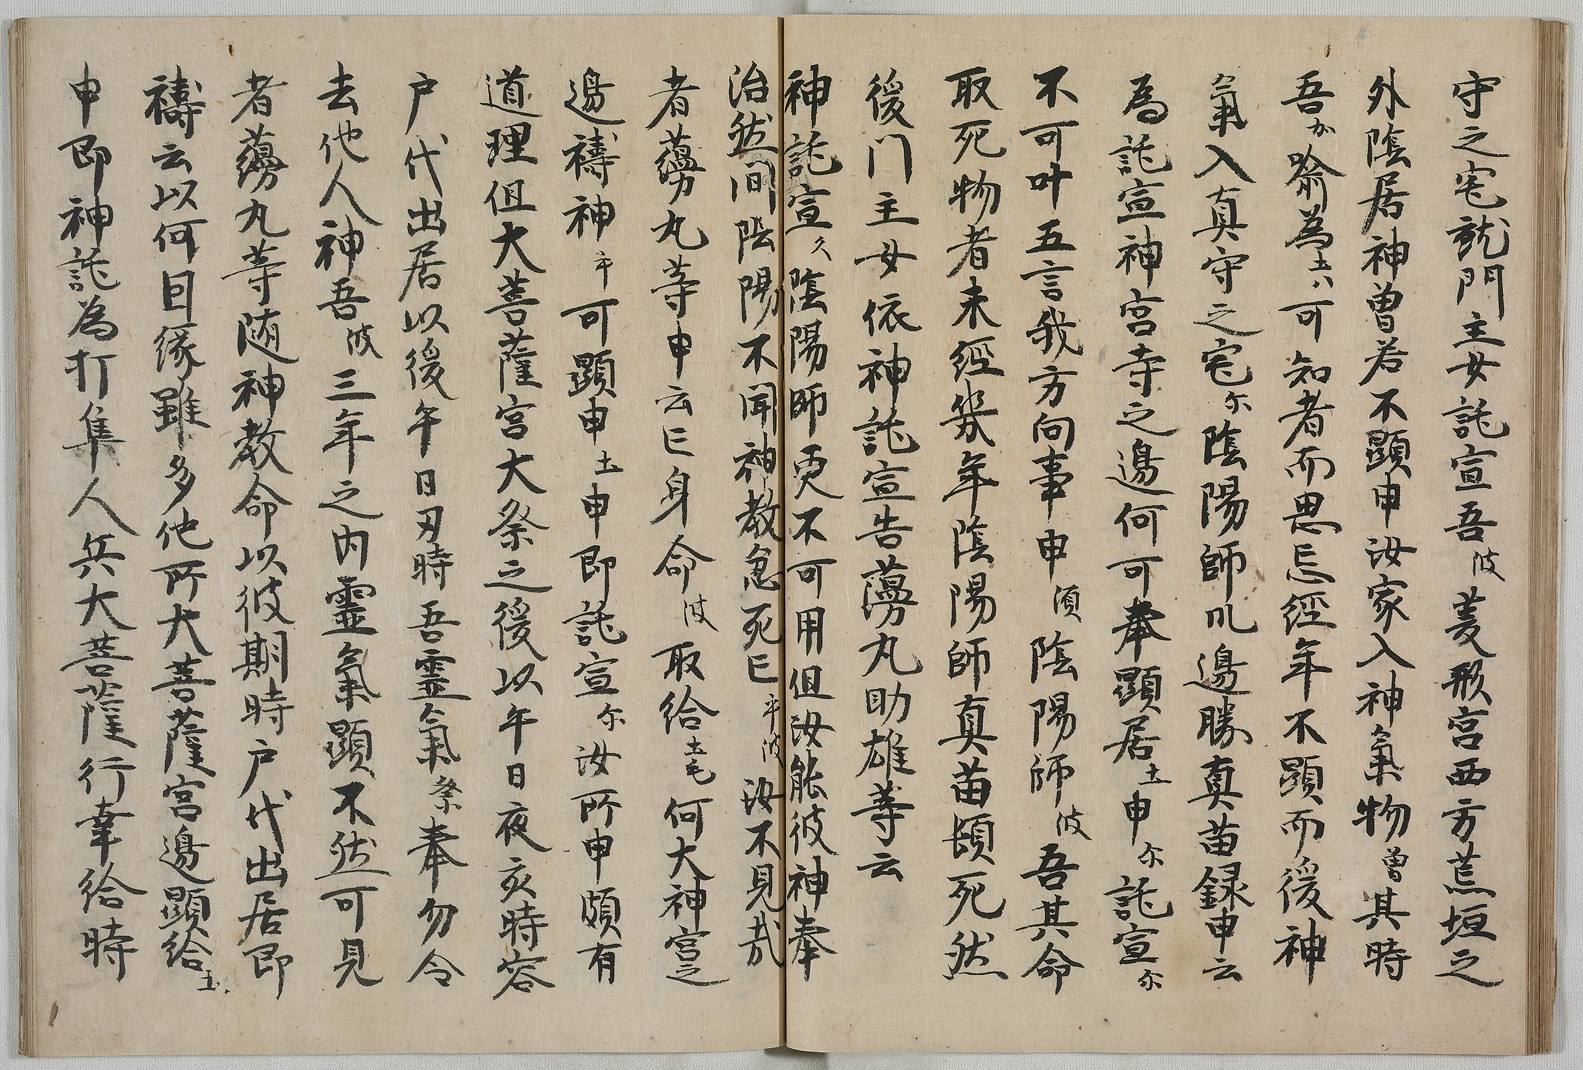 守之宅就門主女託宣吾波菱形宮西方荒垣之
外陰居神曽若不顕申汝家入神氣物曽其時
吾加喩為土八可知者而思忘經年不顕而後神
氣入真守之宅尓陰陽師川邊勝真苗録申云
為託宣神宮寺之邊何可奉顕居土申尓託宣尓
不可叶五言我方向事申須陰陽師波吾其命
取死物者未經幾年陰陽師真苗頓死然
後门主女依神託宣告蕩丸助雄等云
神託宣久陰陽師更不可用但汝能彼神奉
治然間陰陽不聞神教怠死已平波汝不見哉
者蕩丸等申云己身命波取給土毛何大神宮之
邊禱神乎可顕申土申即託宣尓汝所申頗有
道理但大菩薩宮大祭之後以午日夜亥時容
戸代出居以後午日刃時吾霊氣祭奉勿令
去他人神吾波三年之内霊氣顕不然可見
者蕩丸等随神教命以彼期時戸代出居即
禱云以何因縁雖多他所大菩薩宮邊顕給土
申即神託為打集人兵大菩薩行幸給時